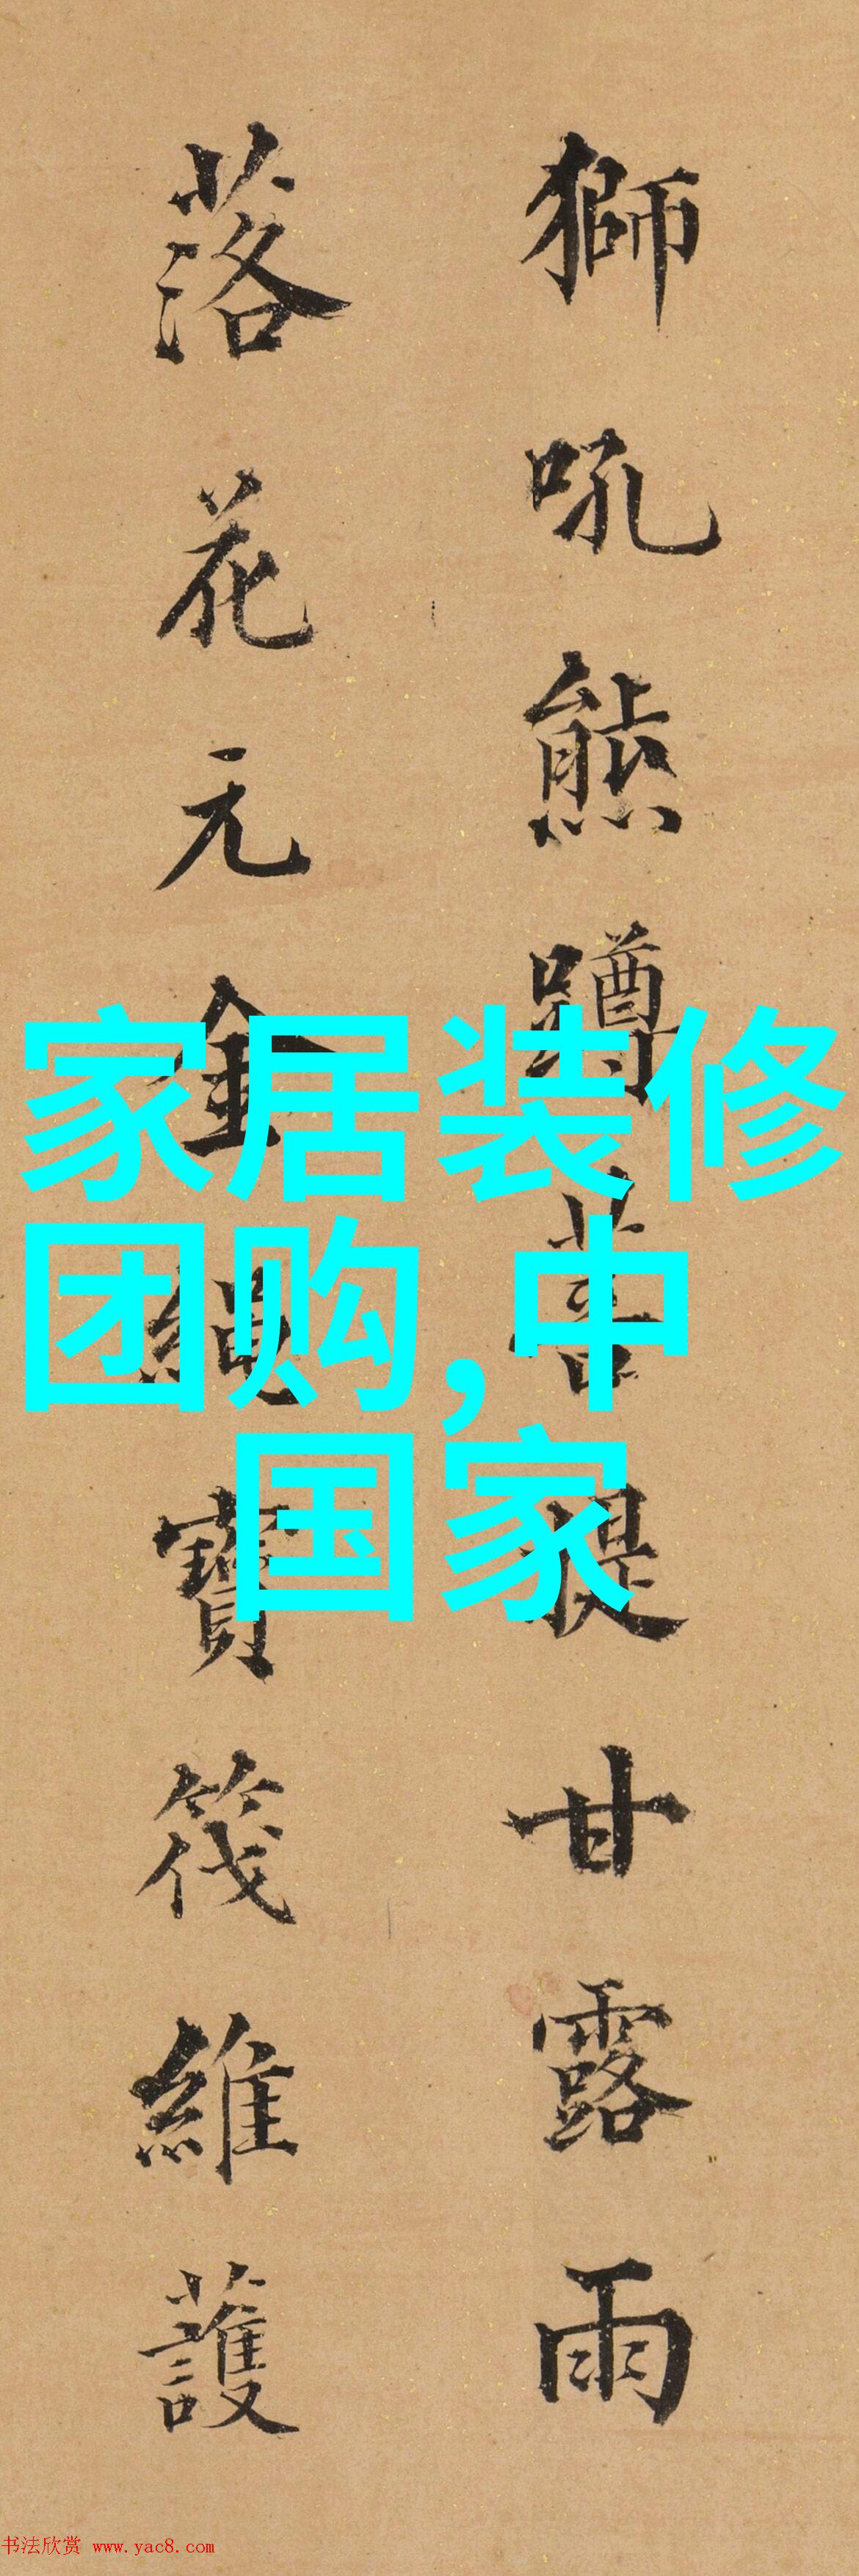 獅吼熊蹲菩提甘露雨
落花元金繩寶筏維護
家居装修
团购,中
国家
书法欣赏 www.yac8.com